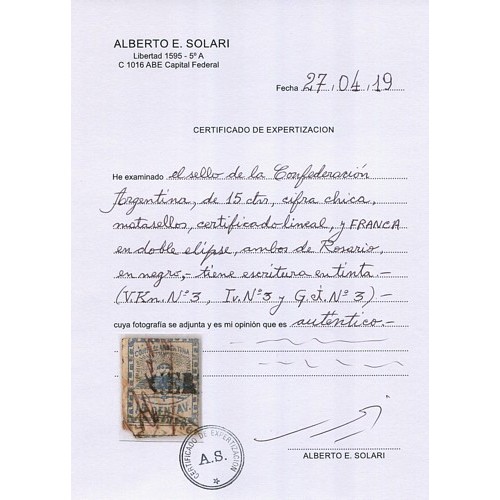 ALBERTO E. SOLARI
Libertad 1595 - 5º A
C 1016 ABE Capital Federal
Fecha 27/04/19
CERTIFICADO DE EXPERTIZACION
He examinado el sello de la Confederación
Argentina, de 15 ctvs, cifra chica,
matasellos, certificado lineal, y FRANCA
en doble elipse, ambos de Rosario,
en negro,- tiene escritura en tinta.-
(V.Kn. Nº 3, Iv. Nº 3 y G.et. Nº 3)-
cuya fotografía se adjunta y es mi opinión que es auténtico.-
CENTAV.
CERTIFICADO DE EXPERTIZACION
A.S.
ALBERTO E. SOLARI